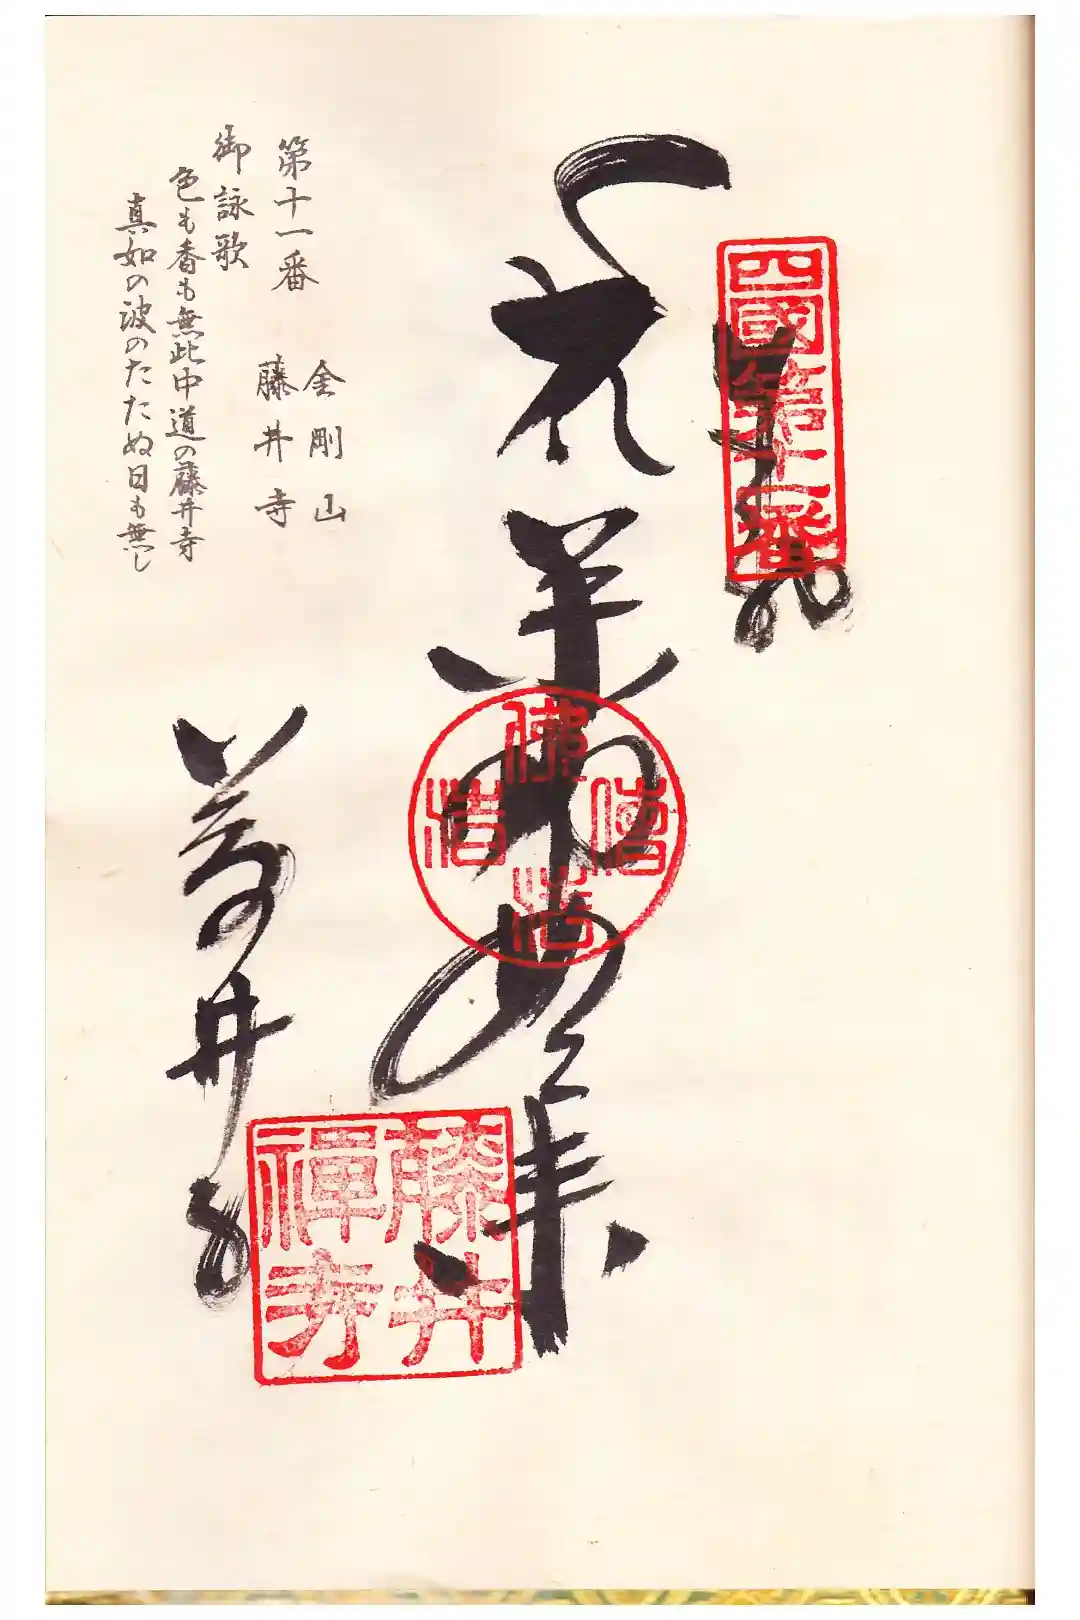 四國第十一番
薬師如来
藤井寺
藤井
禪寺
第十一番
金剛山
藤井寺
御詠歌
色も香も無比中道の藤井寺
真如の波のたたぬ日も無し